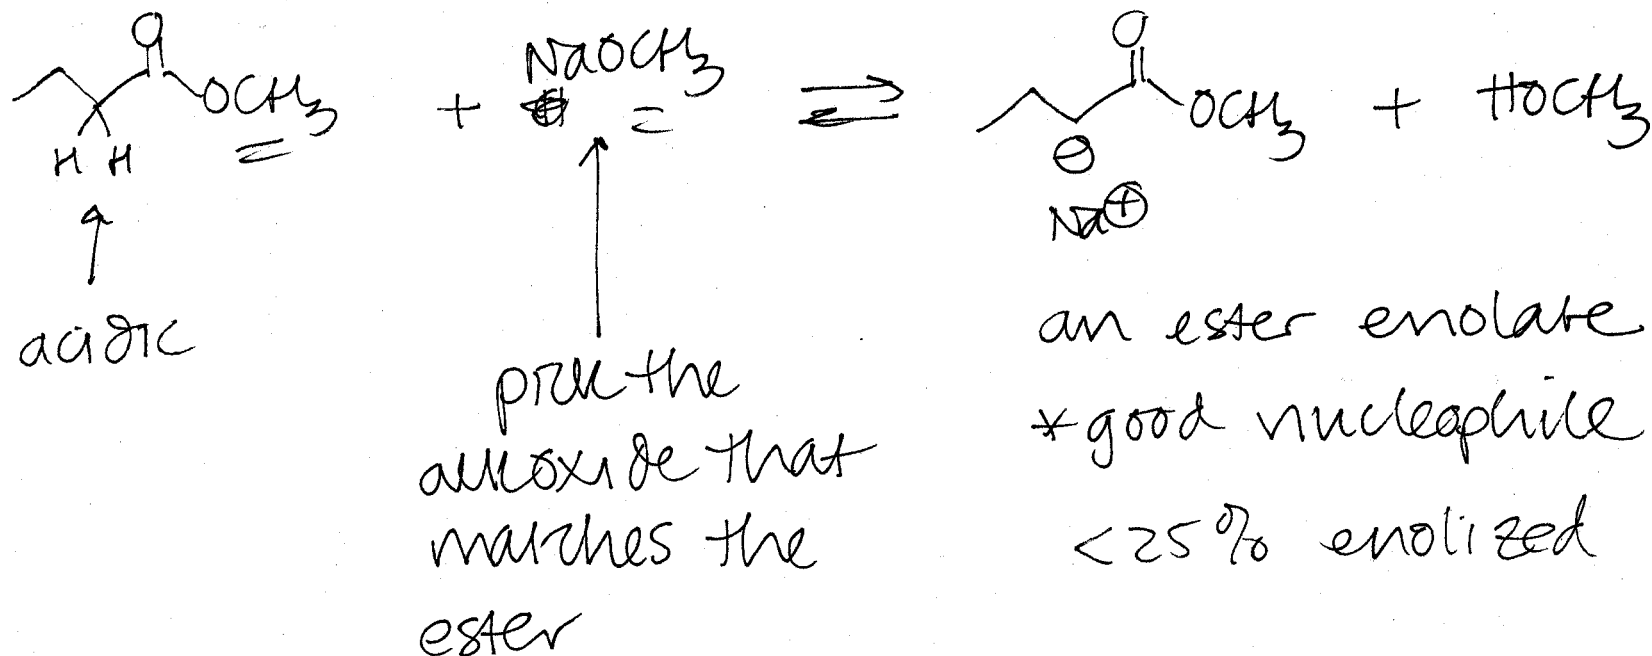 O O
NaOCH3
OCH3 + ⇌ OCH3 + HOCH3
H H ⊖
Na⊕
acidic
pick the
alkoxide that
matches the
ester
an ester enolate
*good nucleophile
<25% enolized